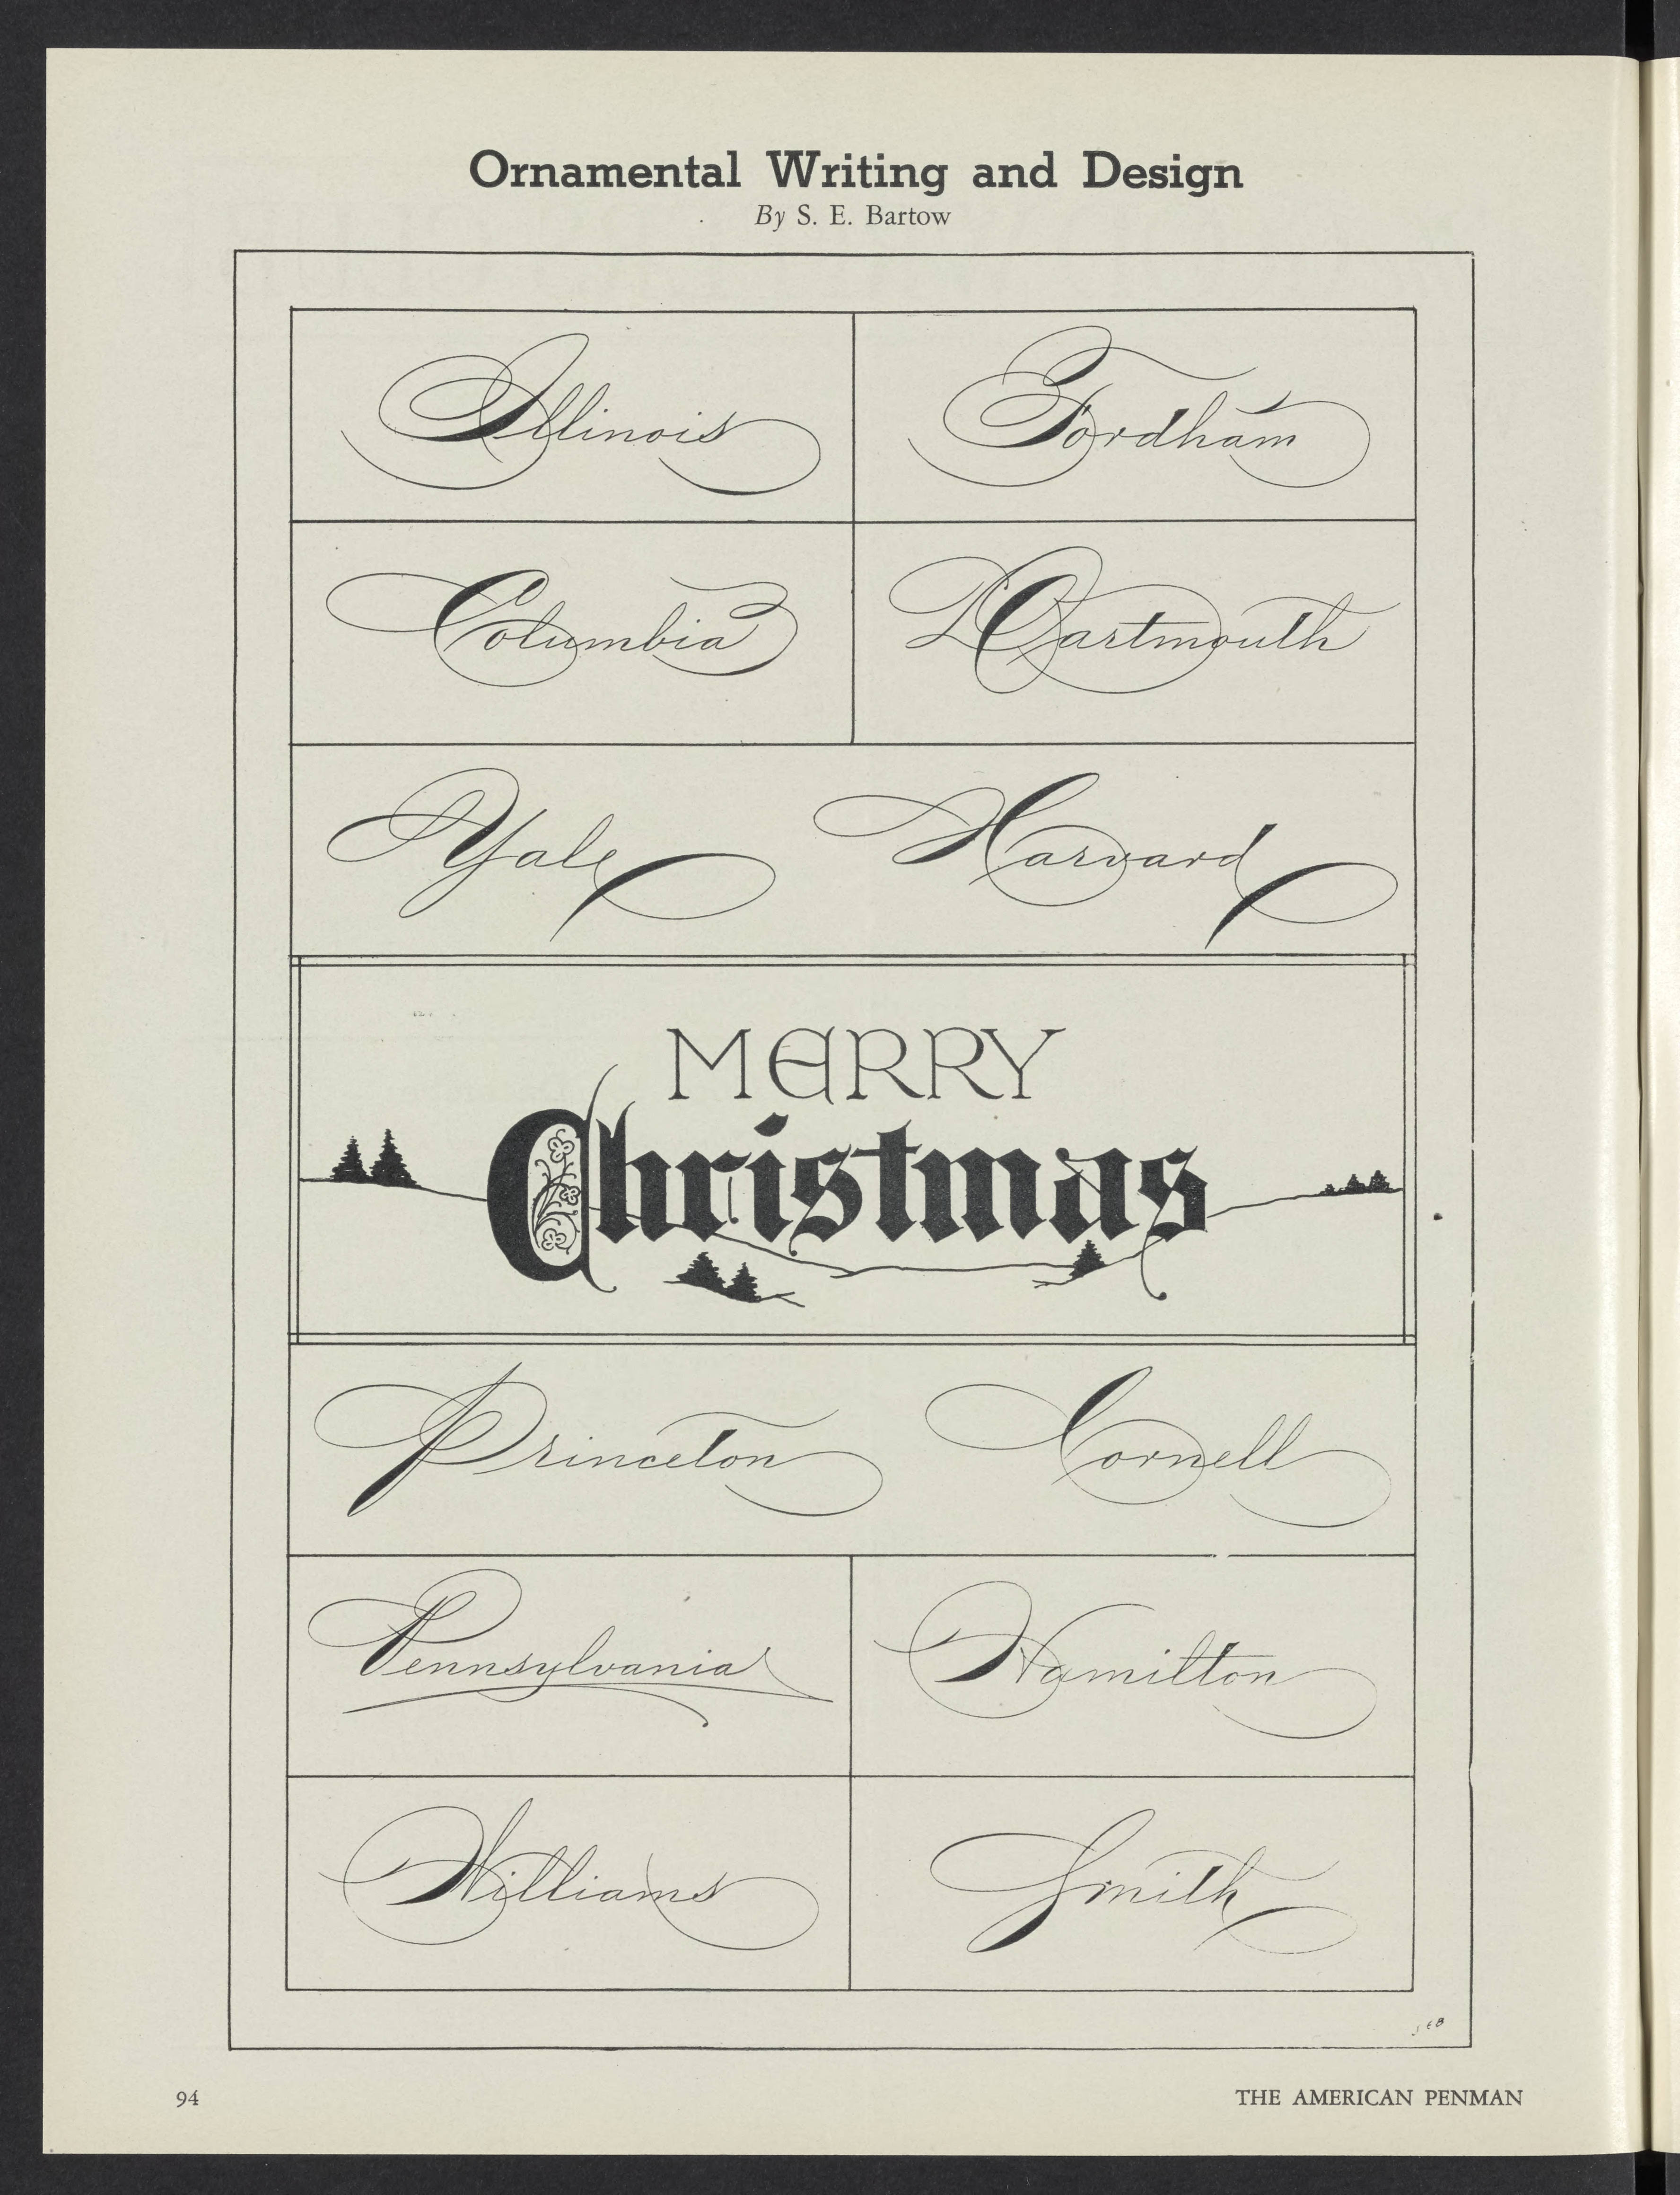 Ornamental Writing and Design
By S. E. Bartow
Illinois Fordham
Columbia Dartmouth
Yale Harvard
MERRY
Christmas
Princeton Cornell
Pennsylvania Hamilton
Williams Smith
SEB
94 THE AMERICAN PENMAN